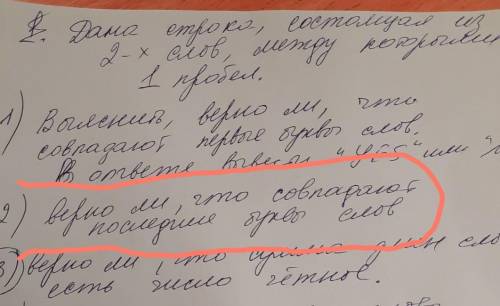 1. Дана строка, состоящая из
2-х слов, между которыми
1 пробел.
1) Выяснить, верно ли, что
совпадают первые буквы слов.
В ответе вывести "YES" или
2) верно ли, что совпадают
последние буквы слов
3) верно ли, что сумма длин
есть число чётное.